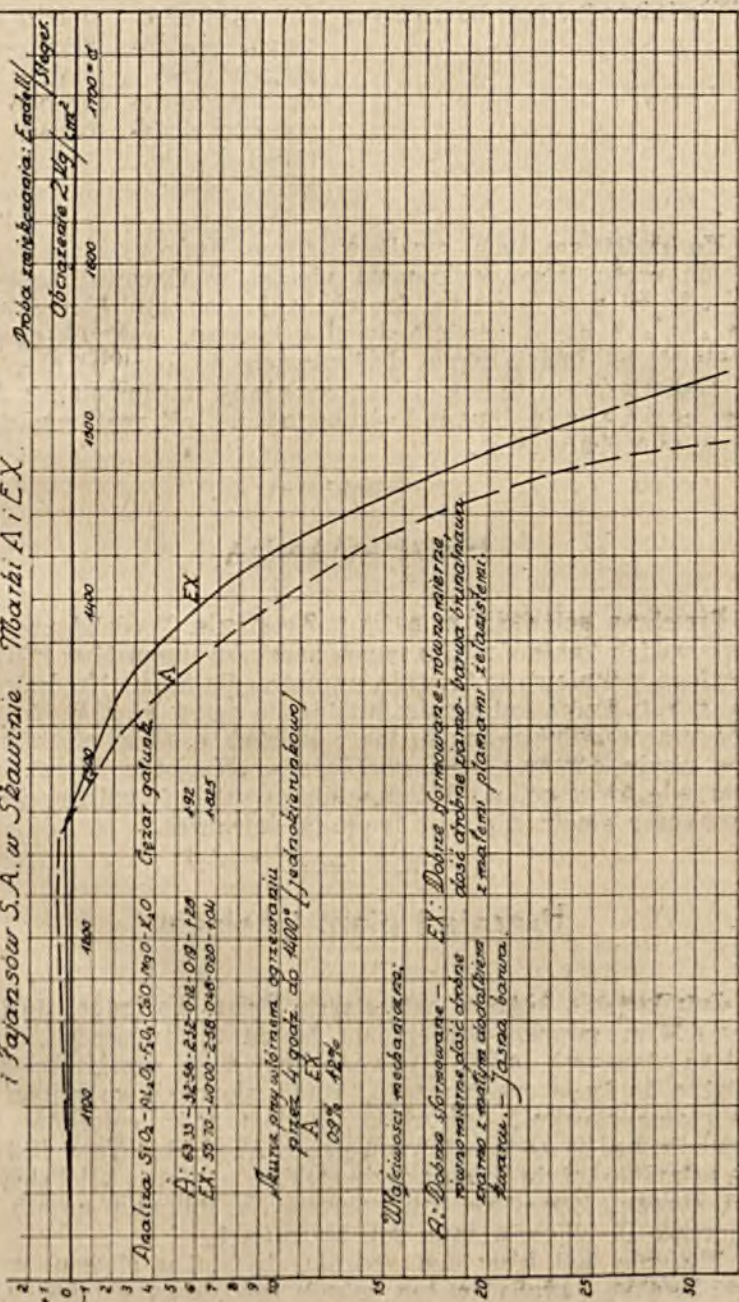 i Fajansów S.A. w Skawinie. Marki A i EX.
Próba zmiękczania: Endell/
/Steger.
Obciążenie 2 kg/cm²
1100
1200
1300
1400
1500
1600
1700 = d
2
+1
0
-1
2
3
4
5
6
7
8
9
10
15
20
25
30
A
EX
Analiza SiO₂ - Al₂O₃ - Fe₂O₃ - CaO - MgO - K₂O Ciężar gatunk.
A: 63 33 - 32 56 - 2 52 - 0 12 - 0 19 - 1 28 1.92
EX: 55 70 - 40 00 - 2 58 - 0 48 - 0 20 - 1 04 1.825
Skurcz przy wtórnem ogrzewaniu
przez 4 godz. do 1400° /jednokierunkowo/
A EX
0.9% 1.2%
Właściwości mechaniczne:
A: Dobrze sformowane -
równomierne dość drobne
ziarno z małym dodatkiem
kwarcu. - Jasna barwa.
EX: Dobrze sformowane - równomierne,
dość drobne ziarno - barwa brunatnawa
z małemi plamami żelazistemi.